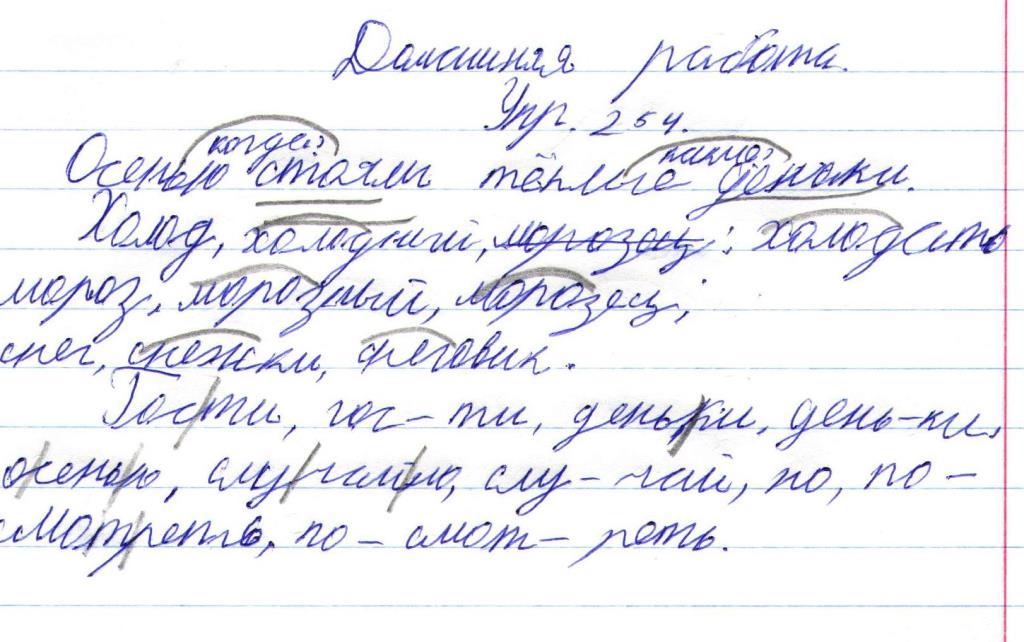 Домашняя работа.
Упр. 254.
когда? какие?
Осенью стояли тёплые деньки.
Холод, холодный, морозец: холодать
мороз, морозный, морозец;
снег, снежки, снеговик.
Гости, гос-ти, деньки, день-ки,
осенью, случайно, слу-чай, но, по-
смотреть, по-смот-реть.